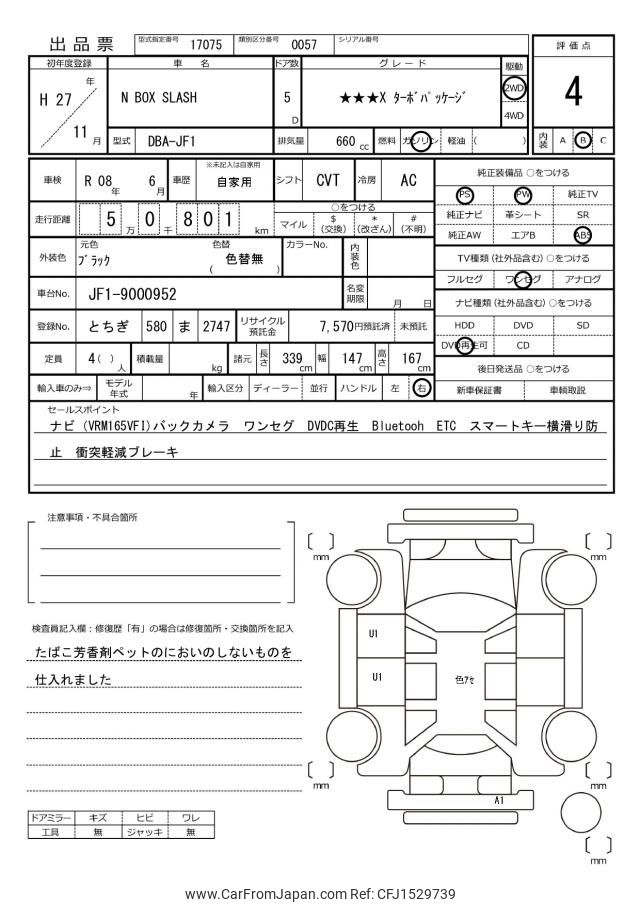 出品票
型式指定番号 17075 類別区分番号 0057 シリアル番号
評価点
初年度登録 車名 ドア数 グレード 駆動
H 27 年
11 月
N BOX SLASH 5 D ★★★X ﾀｰﾎﾞﾊﾟｯｹｰｼﾞ 2WD
4WD
4
型式 DBA-JF1 排気量 660 cc 燃料 ガソリン 軽油 ( )
内装 A B C
車検 R 08 年 6 月 車歴 ※未記入は自家用 自家用 シフト CVT 冷房 AC
純正装備品 ○をつける
PS PW 純正TV
純正ナビ 革シート SR
純正AW エアB ABS
走行距離 5 万 0 千 8 0 1 km
○をつける
マイル $ (交換) * (改ざん) # (不明)
外装色 元色 ﾌﾞﾗｯｸ 色替 ( 色替無 ) カラーNo. 内装色
TV種類 (社外品含む) ○をつける
フルセグ ワンセグ アナログ
車台No. JF1-9000952 名変期限 月 日
ナビ種類 (社外品含む) ○をつける
HDD DVD SD
DVD再生可 CD
登録No. とちぎ 580 ま 2747 リサイクル預託金 7,570円預託済 未預託
定員 4 ( ) 人 積載量 kg 諸元 長さ 339 cm 幅 147 cm 高さ 167 cm
後日発送品 ○をつける
新車保証書 車輌取説
輸入車のみ⇒ モデル年式 年 輸入区分 ディーラー 並行 ハンドル 左 右
セールスポイント
ナビ (VRM165VFI)バックカメラ ワンセグ DVDC再生 Bluetooh ETC スマートキー横滑り防
止 衝突軽減ブレーキ
注意事項・不具合箇所
検査員記入欄：修復歴「有」の場合は修復箇所・交換箇所を記入
たばこ芳香剤ペットのにおいのしないものを
仕入れました
mm
mm
U1
U1
色ｱｾ
mm
mm
A1
mm
ドアミラー キズ ヒビ ワレ
工具 無 ジャッキ 無
www.CarFromJapan.com Ref: CFJ1529739